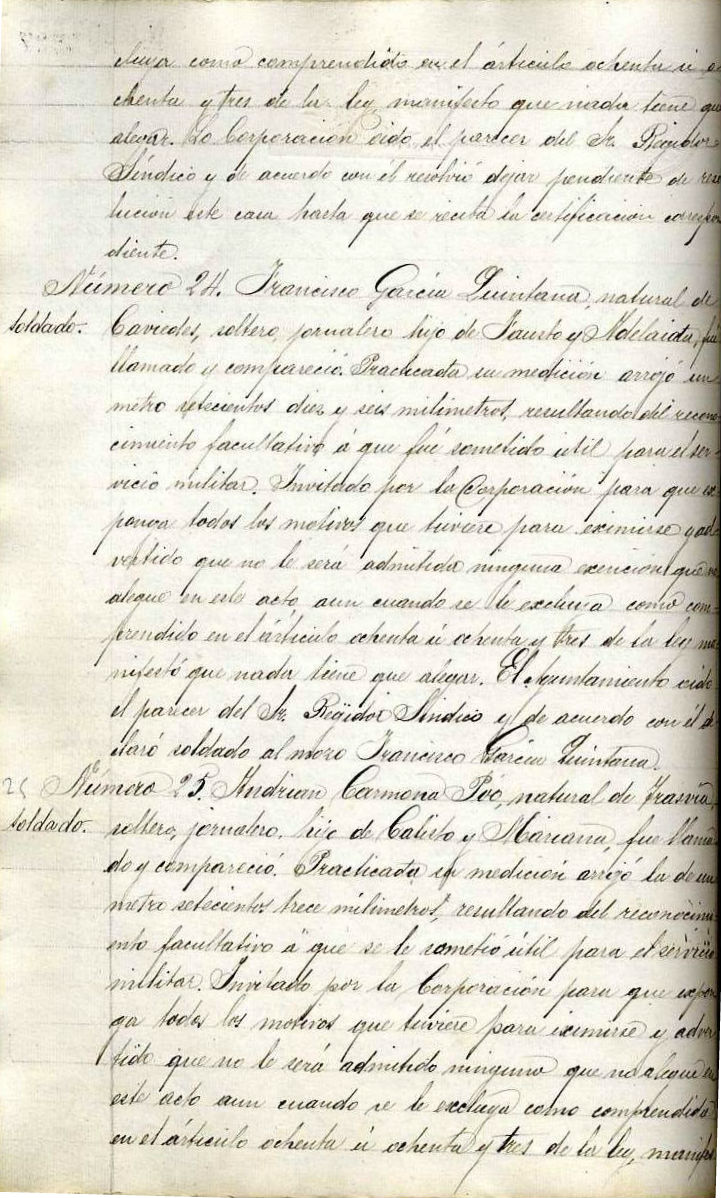 cluya como comprendido en el árticulo ochenta ú o
chenta y tres de la ley, manifesto que nada tiene que
alegar. La Corporación oido el parecer del Sr. Regidor
Síndico y de acuerdo con él resolvió dejar pendiente de reso
lución este caso hasta que se reciba la certificación correspon
diente.
Número 24. Francisco García Quintana, natural de
soldado. Caviedes, soltero, jornalero hijo de Fausto y Adelaida, fué
llamado y compareció. Practicada su medición arrojó un
metro setecientos diez y seis milimetros, resultando del recono-
cimiento facultativo á que fué sometido útil para el ser-
vicio militar. Invitado por la Corporación para que ex
ponga todos los motivos que tuviere para eximirse y ad-
vertido que no le será admitida ninguna exención que no
alegue en este acto, aun cuando se le excluya como com-
prendido en el árticulo ochenta ú ochenta y tres de la ley, ma-
nifestó que nada tiene que alegar. El Ayuntamiento oido
el parecer del Sr. Regidor Síndico y de acuerdo con él de
claró soldado al mozo Francisco García Quintana.
25 Número 25. Andrian Carmona Poó, natural de Trasvía,
soldado. soltero, jornalero, hijo de Calisto y Mariana, fue llama
do y compareció. Practicada su medición arrojó la de un
metro setecientos trece milimetros, resultando del reconocimi
ento facultativo á que se le sometió útil para el servicio
militar. Invitado por la Corporación para que expon
ga todos los motivos que tuviere para eximirse y adver
tido que no le será admitido ninguno que no alegue en
este acto aun cuando se le excluya como comprendido
en el árticulo ochenta ú ochenta y tres de la ley, manifes